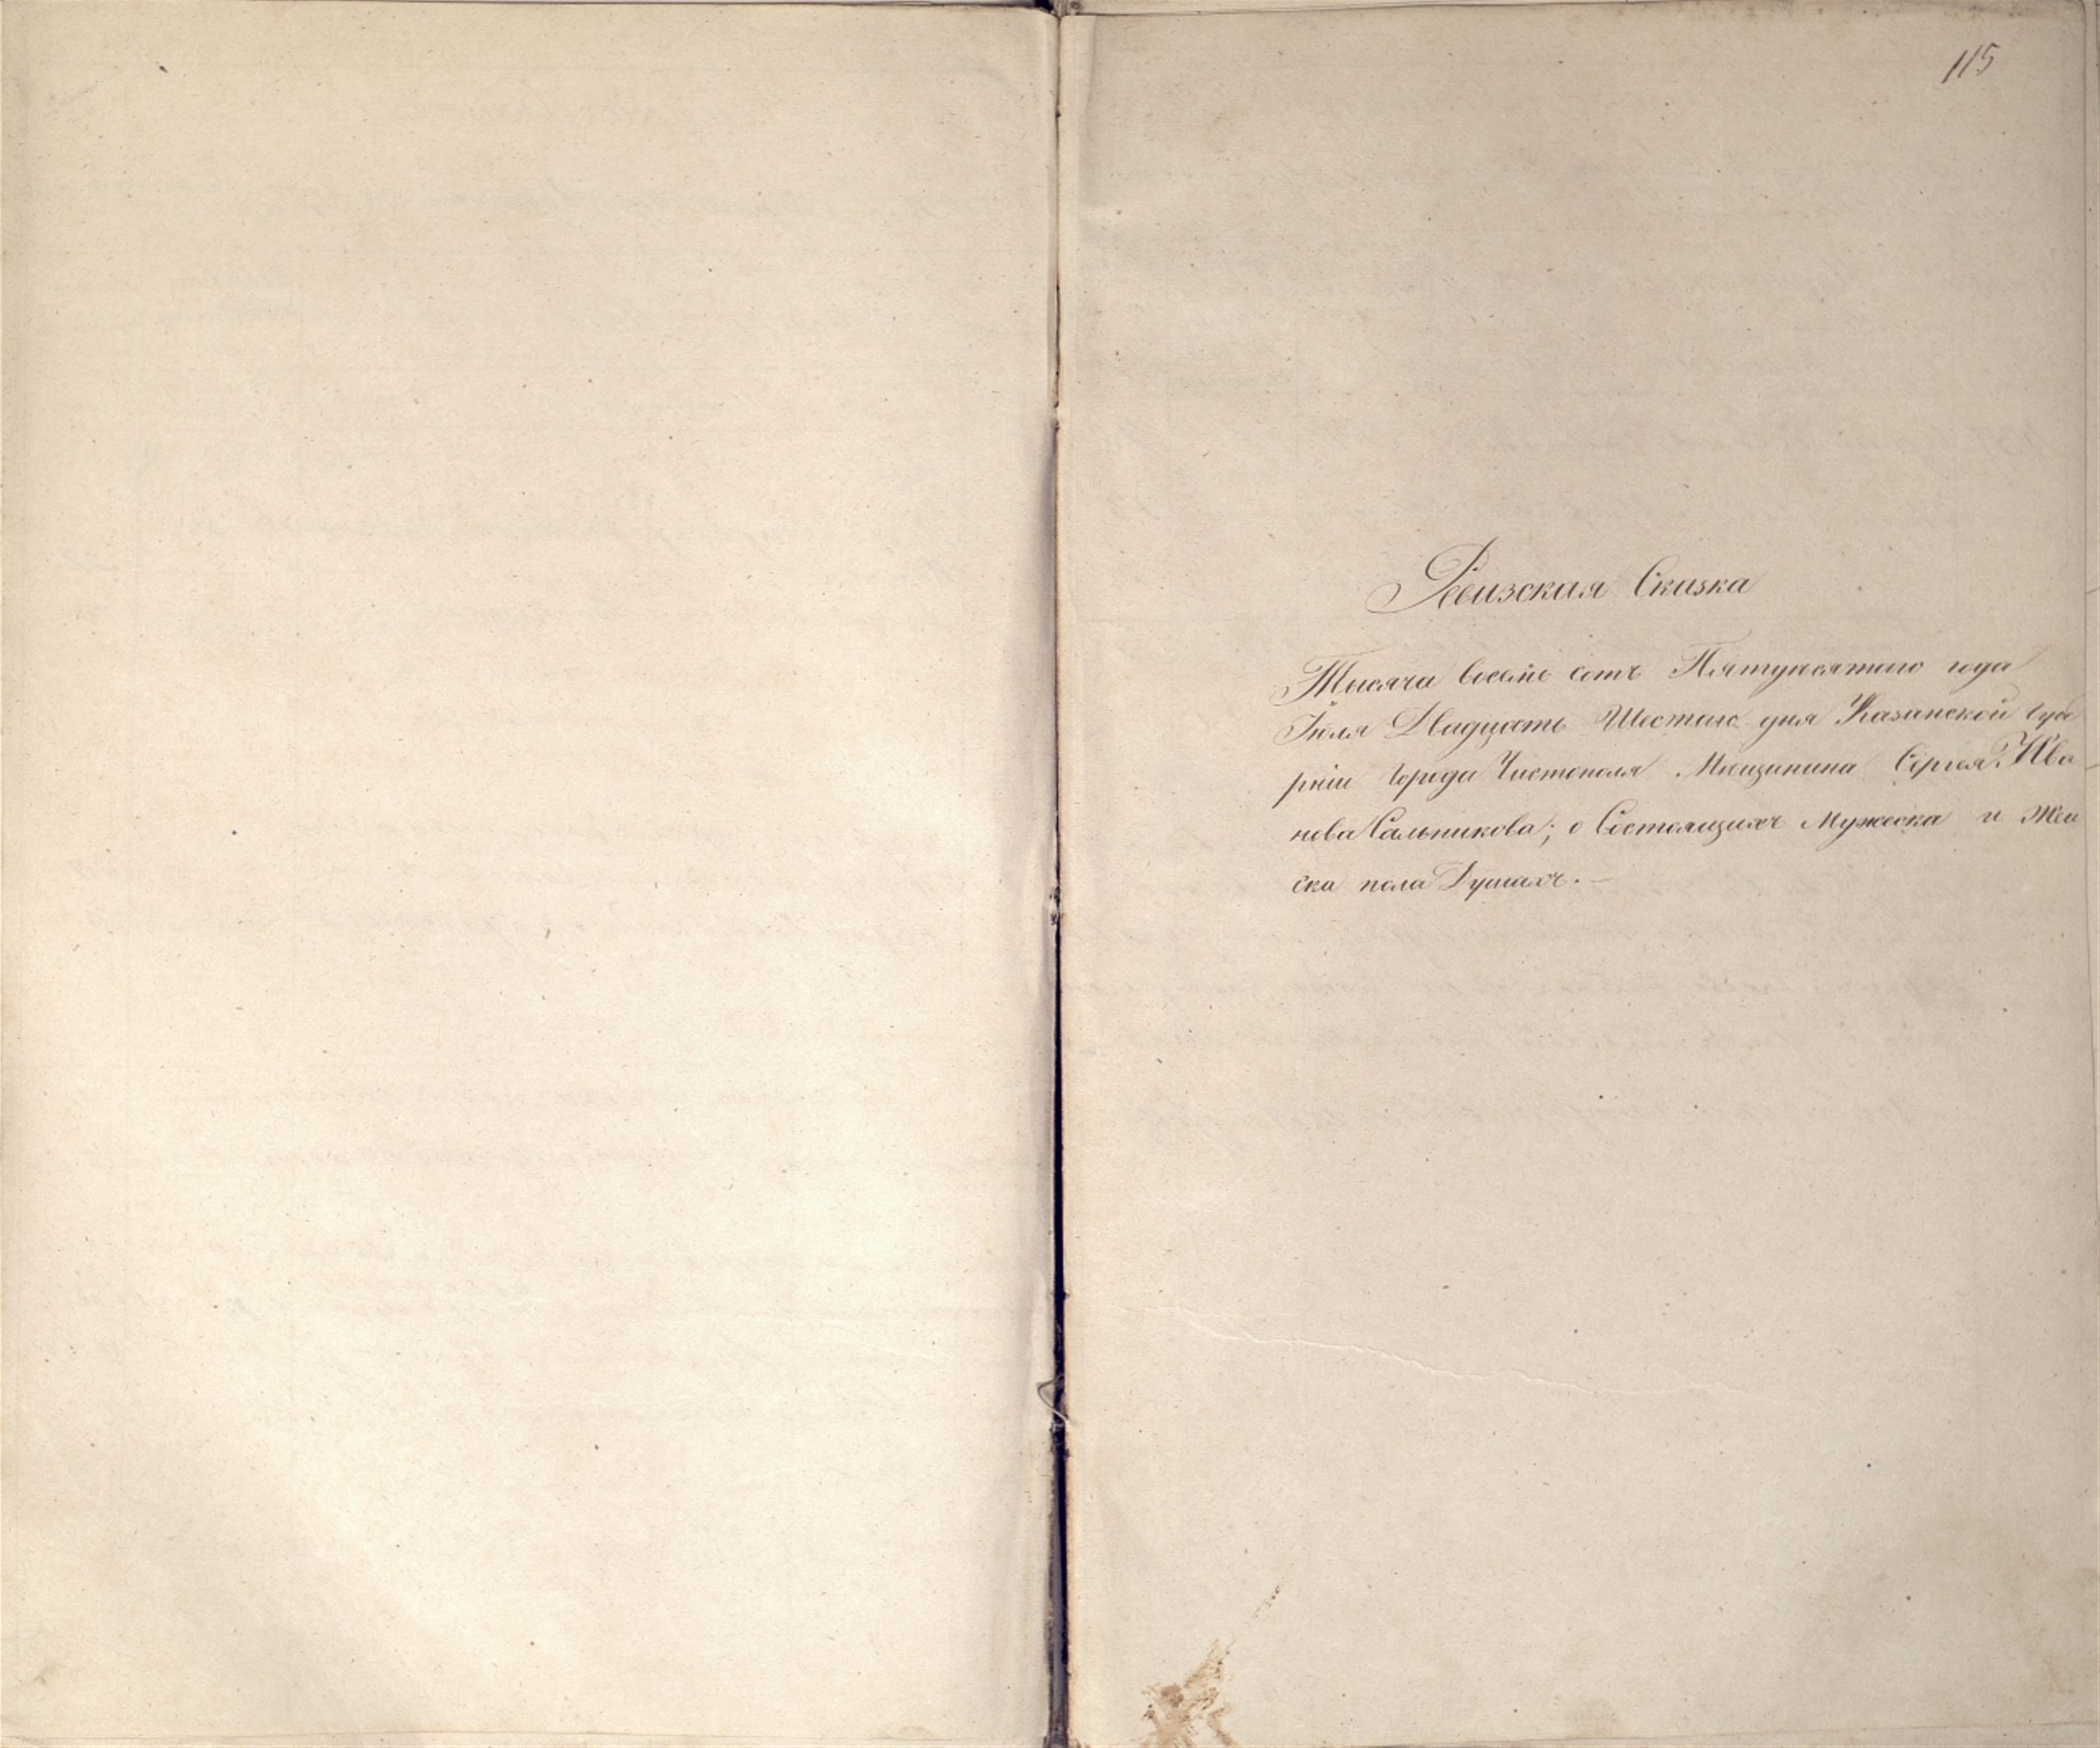 115
Ревизская Сказка
Тысяча восемь сотъ Пятидесятого года
Іюля Двадцать Шестаго дня Казанской губе
рніи города Чистополя Мещанина Сергея Ива
нова Сальникова; о Состоящихъ Мужеска и Жен
ска пола Душахъ. —